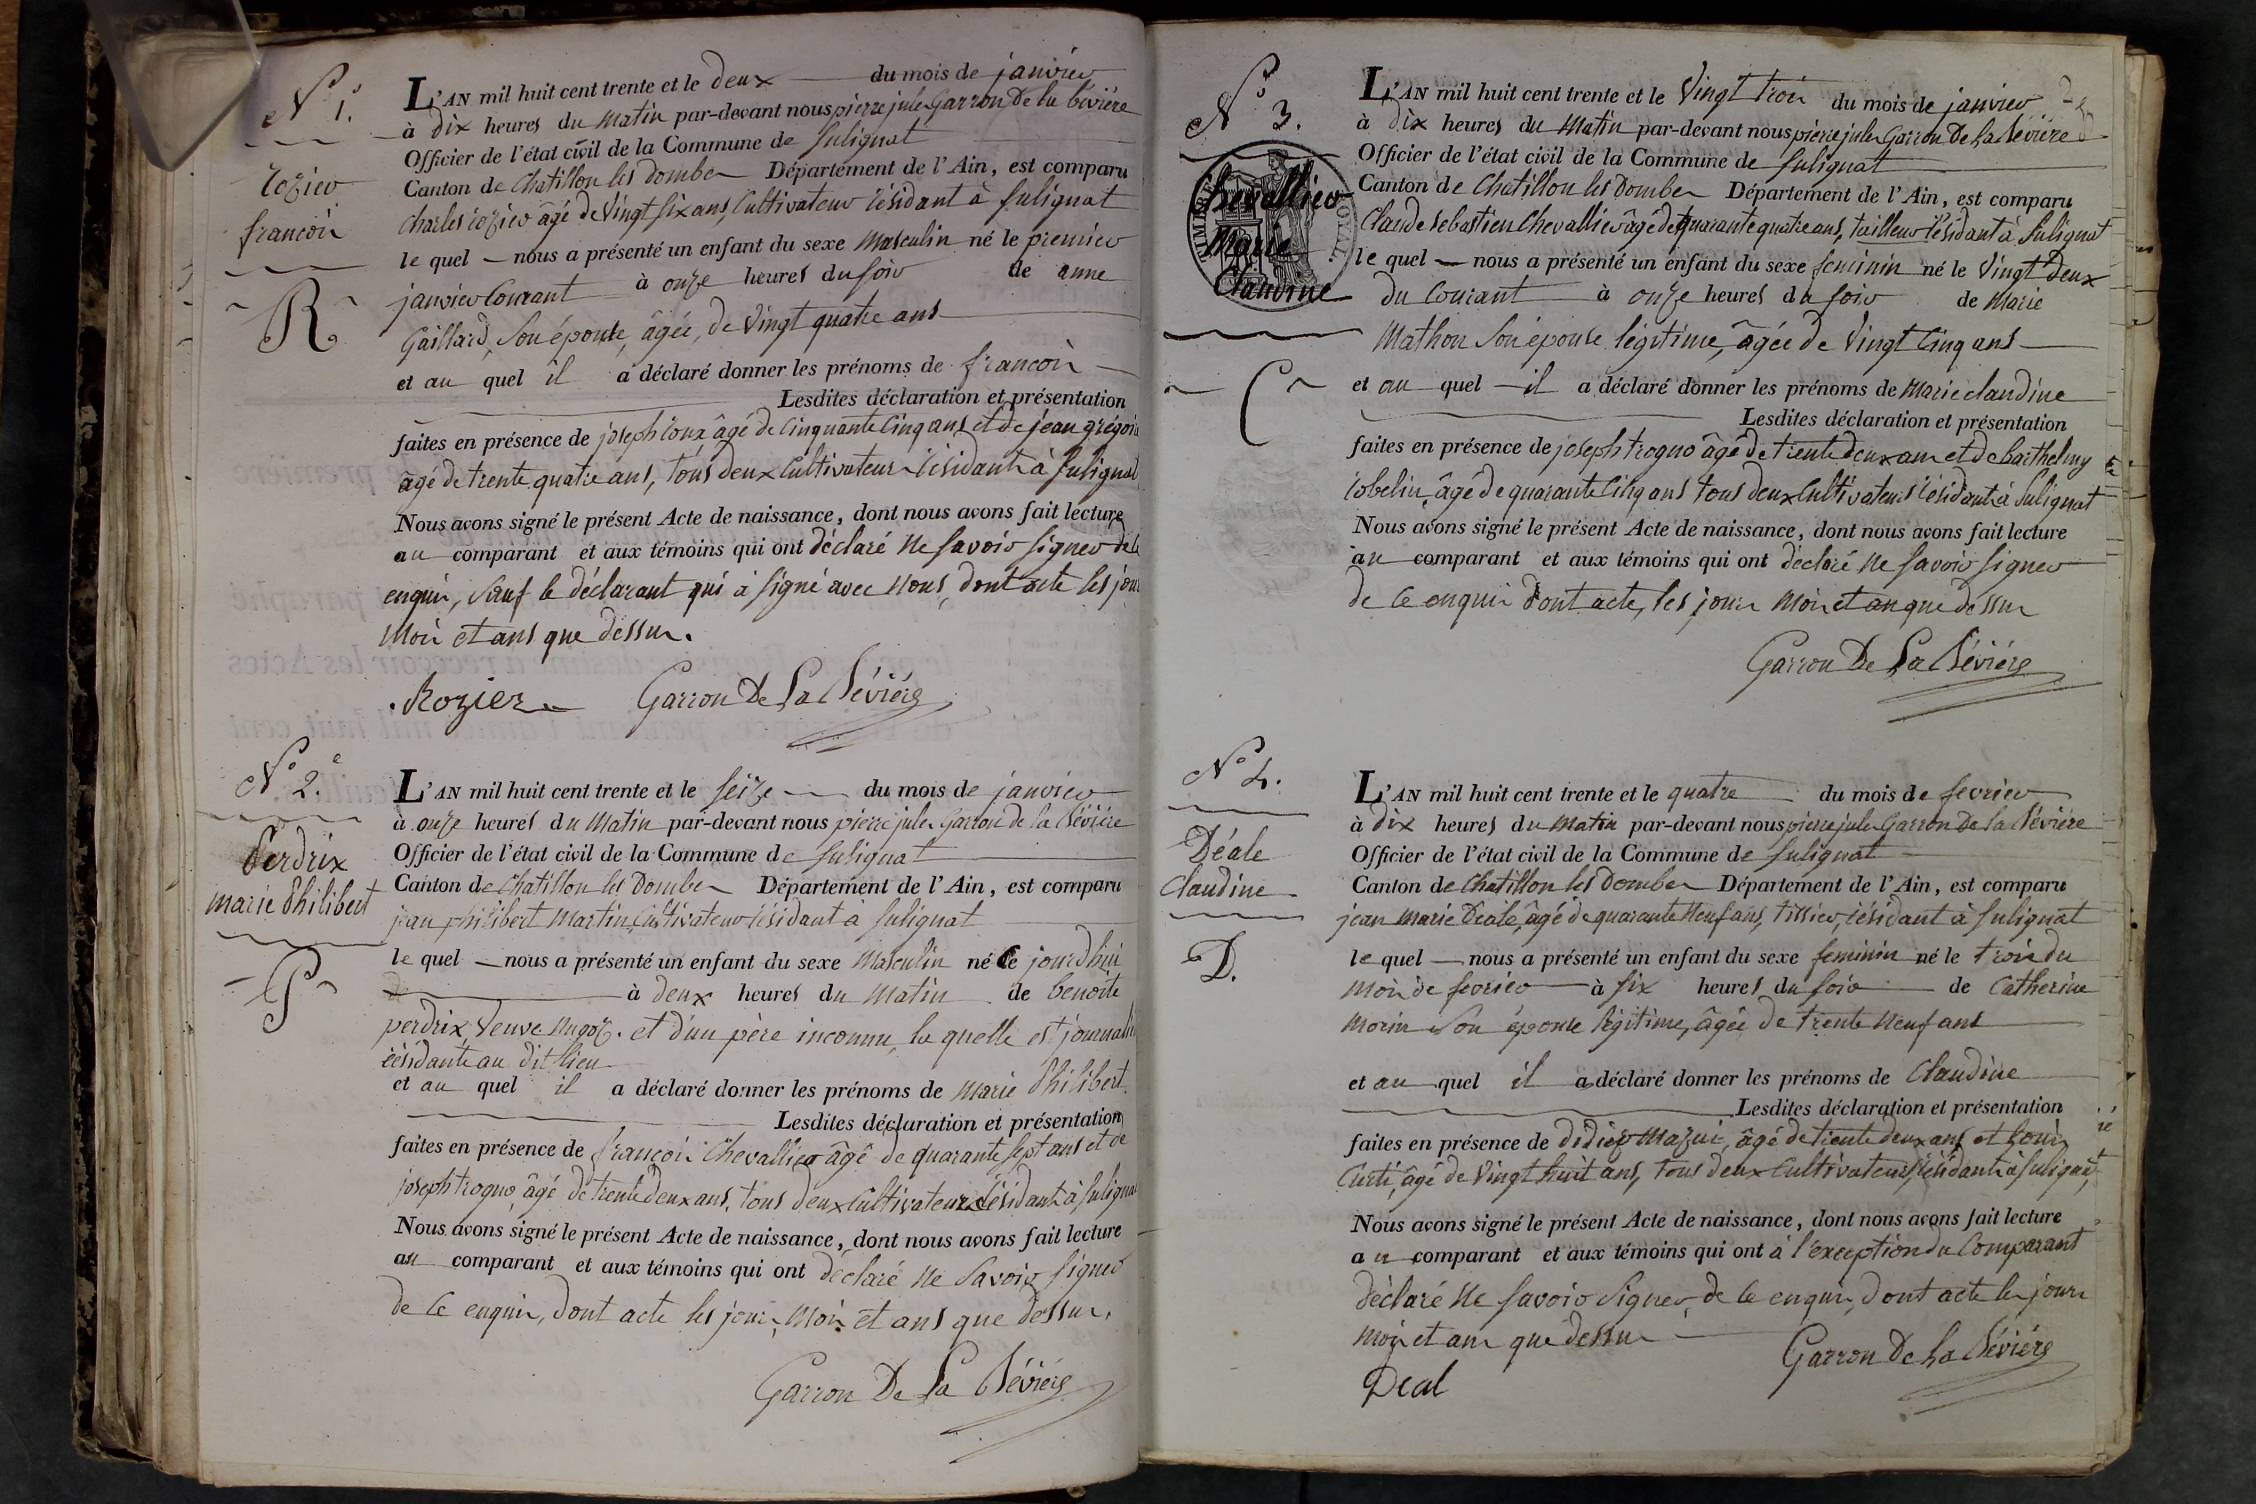 N° 1.
rozier
françois
R
L'AN mil huit cent trente et le deux du mois de janvier
à dix heures du matin par-devant nous pierre jules Garron De la bévière
Officier de l'état civil de la Commune de Sulignat
Canton de Chatillon les Dombes Département de l'Ain, est comparu
Charles rozier âgé de Vingt six ans, Cultivateur résidant à Sulignat
le quel nous a présenté un enfant du sexe Masculin né le premier
janvier Courant à onze heures du soir de anne
Gaillard, Son épouse, âgée, de Vingt quatre ans
et au quel il a déclaré donner les prénoms de françois
Lesdites déclaration et présentation
faites en présence de joseph âgé de Cinquante Cinq ans et de jean grégoire
âgé de trente quatre ans, tous deux Cultivateurs résidants à Sulignat
Nous avons signé le présent Acte de naissance, dont nous avons fait lecture
au comparant et aux témoins qui ont déclaré ne savoir signer de ce
enquis, Sauf le déclarant qui à signé avec nous, dont acte les jour
mois et ans que dessus.
Rozier Garron De La Bévière
N° 2.e
Perdrix
marie Philibert
P
L'AN mil huit cent trente et le seize du mois de janvier
à onze heures du Matin par-devant nous pierre jules Garron de la Bévière
Officier de l'état civil de la Commune de Sulignat
Canton de Chatillon les Dombes Département de l'Ain, est comparu
jean philibert Martin, Cultivateur résidant à Sulignat
le quel nous a présenté un enfant du sexe Masculin né le jourd'hui
à deux heures du Matin de benoite
perdrix, Veuve et d'un père inconnu, la quelle est journalière
résidante au dit lieu
et au quel il a déclaré donner les prénoms de Marie Philibert
Lesdites déclaration et présentation
faites en présence de françois Chevallier âgé de quarante sept ans et de
joseph trogno, âgé de trente deux ans, tous deux Cultivateurs résidants à Sulignat
Nous avons signé le présent Acte de naissance, dont nous avons fait lecture
au comparant et aux témoins qui ont déclaré ne Savoir signer
de Ce enquis, dont acte les jour, mois et ans que dessus.
Garron De La Bévière
N° 3.
Chevallier
Marie
Claudine
C
L'AN mil huit cent trente et le Vingt trois du mois de janvier
à dix heures du Matin par-devant nous pierre jules Garron De La Bévière
Officier de l'état civil de la Commune de Sulignat
Canton de Chatillon les Dombes Département de l'Ain, est comparu
Claude Sebastien Chevallier âgé de quarante quatre ans, tailleur résidant à Sulignat
le quel nous a présenté un enfant du sexe feminin né le Vingt Deux
du Courant à onze heures du soir de Marie
Mathon Son épouse légitime, âgée de Vingt Cinq ans
et au quel il a déclaré donner les prénoms de Marie claudine
Lesdites déclaration et présentation
faites en présence de joseph trogno âgé de trente deux ans et de barthelmy
robelin, âgé de quarante Cinq ans tous deux Cultivateurs résidants à Sulignat
Nous avons signé le présent Acte de naissance, dont nous avons fait lecture
au comparant et aux témoins qui ont déclaré ne savoir signer
de Ce enquis Dont acte, les jour mois et an que dessus
Garron De La Bévière
N° 4.
Déale
Claudine
D.
L'AN mil huit cent trente et le quatre du mois de fevrier
à dix heures du Matin par-devant nous pierre jules Garron De La Bévière
Officier de l'état civil de la Commune de Sulignat
Canton de Chatillon les Dombes Département de l'Ain, est comparu
jean marie Déale, âgé de quarante neuf ans, tissier, résidant à Sulignat
le quel nous a présenté un enfant du sexe feminin né le trois du
mois de fevrier à six heures du soir de Catherine
morin Son épouse légitime, âgée de trente neuf ans
et au quel il a déclaré donner les prénoms de Claudine
Lesdites déclaration et présentation
faites en présence de didier Mazui, âgé de trente deux ans et Louis
Curti, âgé de Vingt huit ans, tous deux Cultivateurs résidants à Sulignat,
Nous avons signé le présent Acte de naissance, dont nous avons fait lecture
au comparant et aux témoins qui ont à l'exception du Comparant
déclaré ne savoir Signer, de Ce enquis, dont acte les jours
mois et an que dessus
Garron De La Bévière
Deal